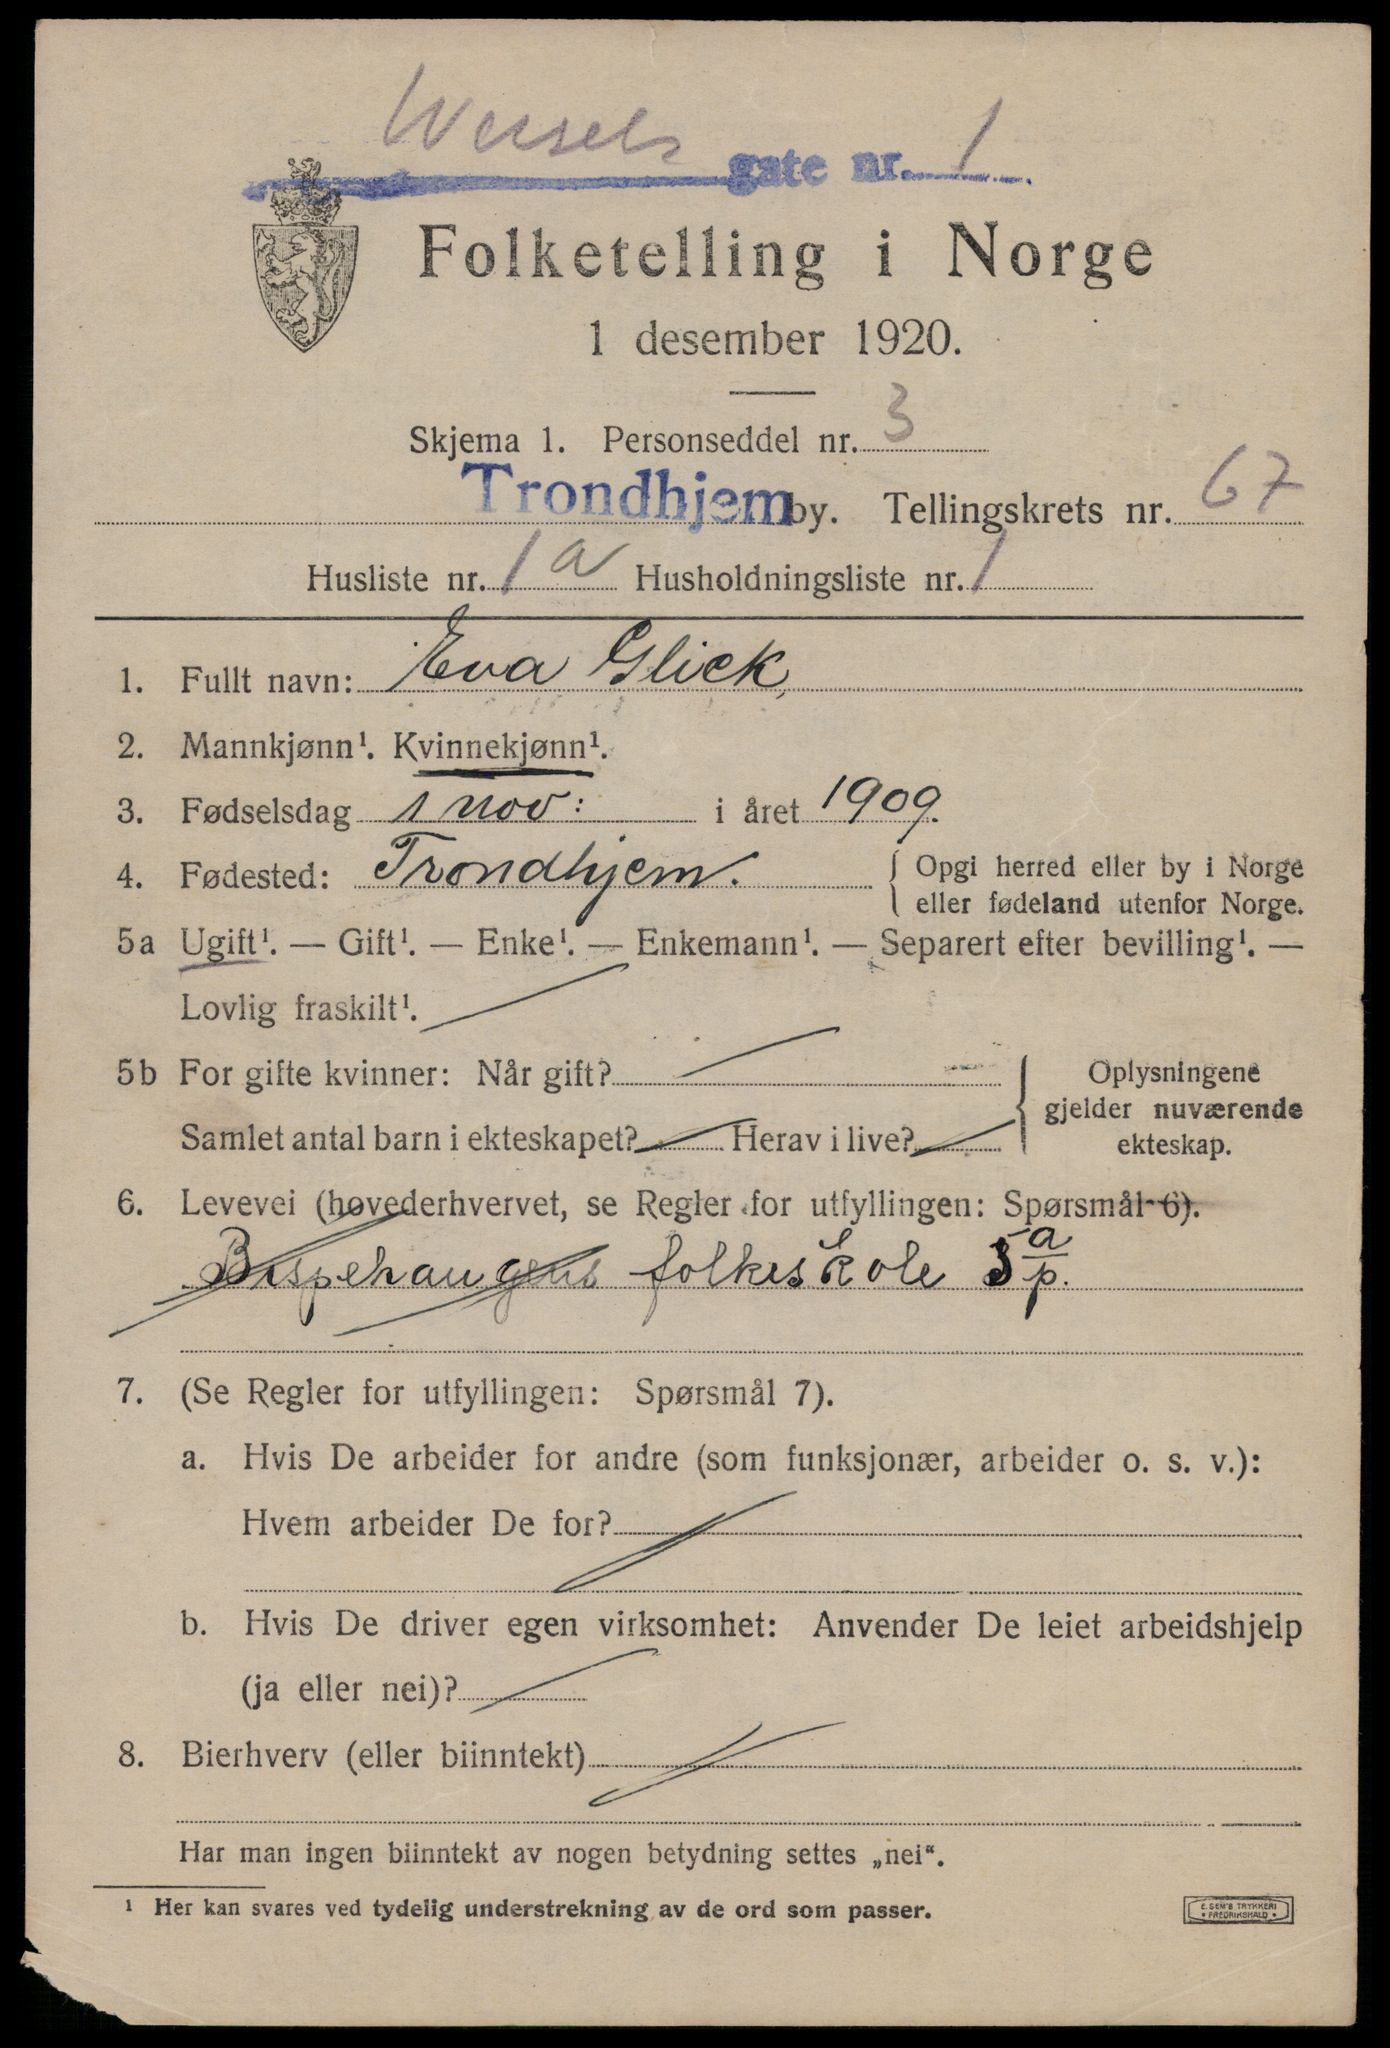 Wessels gate nr. 1
Folketelling i Norge
1 desember 1920.
Skjema 1. Personseddel nr. 3
Trondhjem by. Tellingskrets nr. 67
Husliste nr. 1 a Husholdningsliste nr. 1
1. Fullt navn: Eva Glick,
2. Mannkjønn¹. Kvinnekjønn¹.
3. Fødselsdag 1 nov: i året 1909.
4. Fødested: Trondhjem. { Opgi herred eller by i Norge
eller fødeland utenfor Norge.
5a Ugift¹. — Gift¹. — Enke¹. — Enkemann¹. — Separert efter bevilling¹. —
Lovlig fraskilt¹.
5b For gifte kvinner: Når gift?
Samlet antal barn i ekteskapet? Herav i live?
} Oplysningene
gjelder nuværende
ekteskap.
6. Levevei (hovederhvervet, se Regler for utfyllingen: Spørsmål 6).
Bispehaugens folkeskole 5 a/p.
7. (Se Regler for utfyllingen: Spørsmål 7).
a. Hvis De arbeider for andre (som funksjonær, arbeider o. s. v.):
Hvem arbeider De for?
b. Hvis De driver egen virksomhet: Anvender De leiet arbeidshjelp
(ja eller nei)?
8. Bierhverv (eller biinntekt)
Har man ingen biinntekt av nogen betydning settes „nei“.
¹ Her kan svares ved tydelig understrekning av de ord som passer.
E. SEM'S TRYKKERI
FREDRIKSHALD